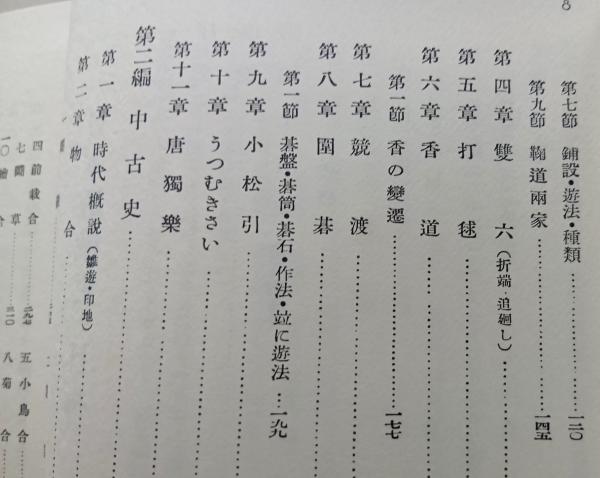 8
第七節 鋪設・遊法・種類………一二〇
第九節 鞠道兩家………一四五
第四章 雙六（折端・追廻し）………
第五章 打毬………
第六章 香道………
第一節 香の變遷………一七七
第七章 競渡………
第八章 圍碁………
第一節 碁盤・碁筒・碁石・作法・竝に遊法…一九九
第九章 小松引………
第十章 うつむきさい………
第十一章 唐獨樂………
第二編 中古史………
第一章 時代概說（雛遊・印地）………
第二章 物合………
四 前栽合……二九七 五 小鳥合
七 鬪草……三一〇 八 菊合